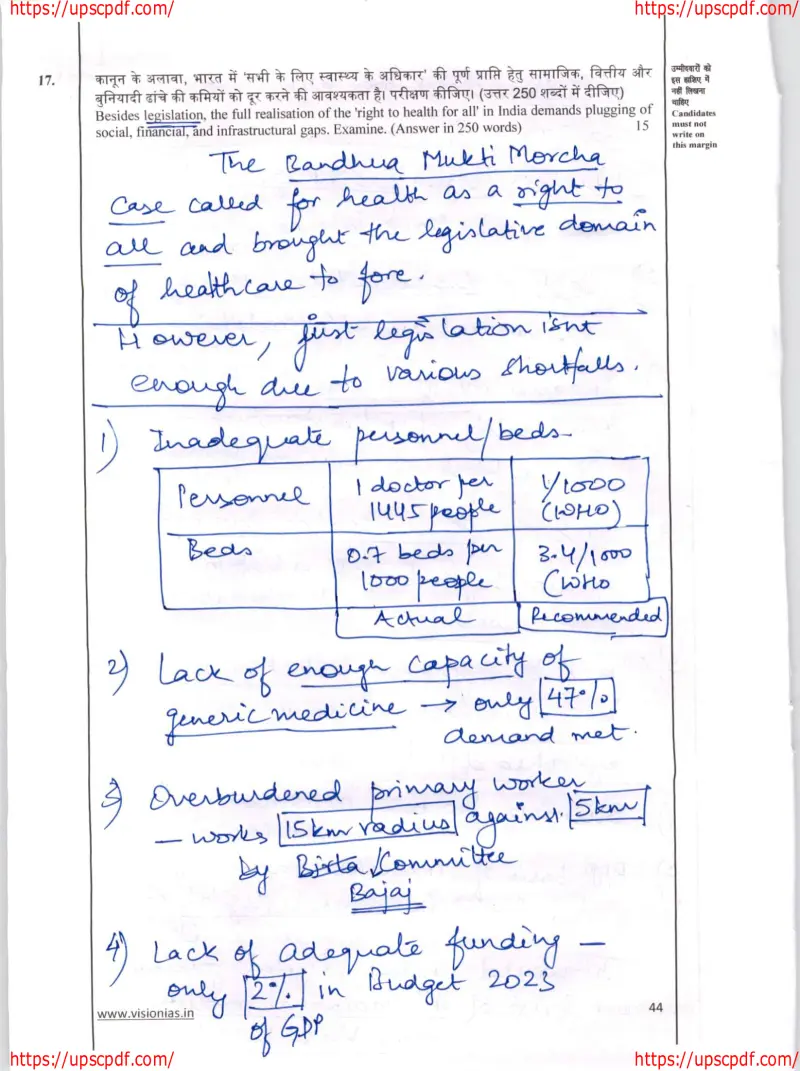 https://upscpdf.com/
https://upscpdf.com/
17.
कानून के अलावा, भारत में 'सभी के लिए स्वास्थ्य के अधिकार' की पूर्ण प्राप्ति हेतु सामाजिक, वित्तीय और
बुनियादी ढांचे की कमियों को दूर करने की आवश्यकता है। परीक्षण कीजिए। (उत्तर 250 शब्दों में दीजिए)
Besides legislation, the full realisation of the 'right to health for all' in India demands plugging of
social, financial, and infrastructural gaps. Examine. (Answer in 250 words)
15
उम्मीदवारों को
इस हाशिए में
नहीं लिखना
चाहिए
Candidates
must not
write on
this margin
The Bandhua Mukti Morcha
Case called for health as a right to
all and brought the legislative domain
of healthcare to fore.
However, just legislation isnt
enough due to various shortfalls.
1) Inadequate personnel/beds-
Personnel
1 doctor per
1445 people
1/1000
(WHO)
Beds
0.7 beds per
1000 people
3.4/1000
(WHO
Actual
Recommended
2) Lack of enough capacity of
generic medicine → only 47%
demand met.
3) Overburdened primary worker
- works 15km radius against 5km
by Committee
Bajaj
4) Lack of adequate funding -
only 2% in Budget 2023
of GDP
www.visionias.in
44
https://upscpdf.com/
https://upscpdf.com/